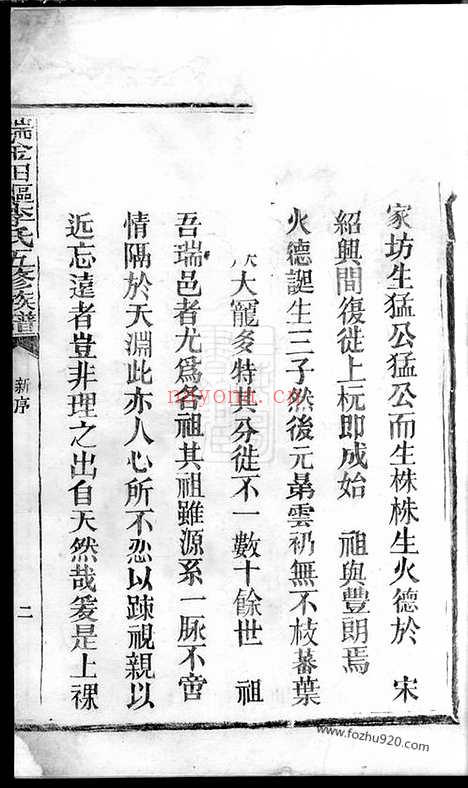 家坊生猛公猛公而生株株生火德於　宋
紹興間復徙上杭即成始　祖與豐朗焉
火德誕生三子然後元昴雲礽無不枝蕃葉
大寵多特其分徙不一數十餘世　祖
吾瑞邑者尤爲各祖其祖雖源系一脉不啻
情隔於天淵此亦人心所不忍以踈視親以
近忘遠者豈非理之出自天然哉爰是上祼
瑞金田 李氏五修族譜
新序
二
nayona.cn
www.fozhu920.com